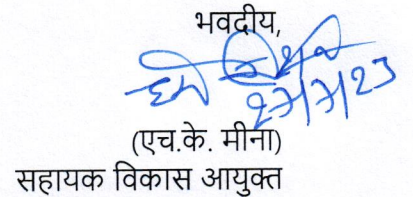 भवदीय,
(एच.के. मीना)
सहायक विकास आयुक्त